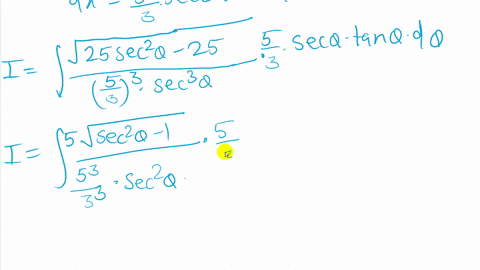 dx = 5/3 · sec
I = ∫ √(25sec²θ - 25) / ((5/3)³ · sec³θ) 5/3 · secθ · tanθ · dθ
I = ∫ 5√(sec²θ - 1) / (5³/3³ · sec²θ · 5/